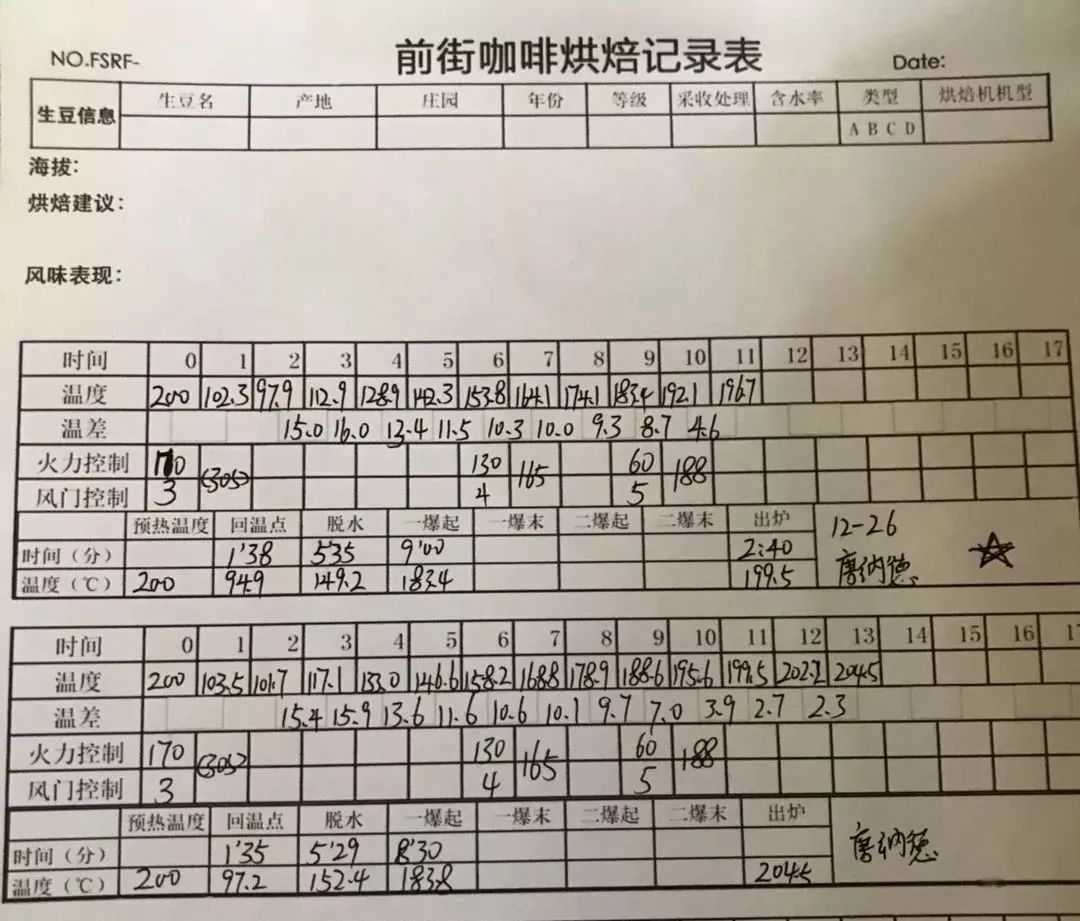 NO.FSRF- 前街咖啡烘焙记录表 Date:
生豆信息 生豆名 产地 庄园 年份 等级 采收处理 含水率 类型 烘焙机机型
A B C D
海拔:
烘焙建议:
风味表现:
时间 0 1 2 3 4 5 6 7 8 9 10 11 12 13 14 15 16 17
温度 200 102.3 97.9 112.9 128.9 142.3 153.8 164.1 174.1 183.4 192.1 196.7
温差 15.0 16.0 13.4 11.5 10.3 10.0 9.3 8.7 4.6
火力控制 170 (30s) 130 165 60 188
风门控制 3 4 5
预热温度 回温点 脱水 一爆起 一爆末 二爆起 二爆末 出炉 12-26
时间（分） 1'38 5'35 9'00 2:40
温度（℃） 200 94.9 149.2 183.4 199.5 唐纳德
时间 0 1 2 3 4 5 6 7 8 9 10 11 12 13 14 15 16 17
温度 200 103.5 101.7 117.1 133.0 146.6 158.2 168.8 178.9 188.6 195.6 199.5 202.2 204.5
温差 15.4 15.9 13.6 11.6 10.6 10.1 9.7 7.0 3.9 2.7 2.3
火力控制 170 (30s) 130 165 60 188
风门控制 3 4 5
预热温度 回温点 脱水 一爆起 一爆末 二爆起 二爆末 出炉
时间（分） 1'35 5'29 8'30 唐纳德
温度（℃） 200 97.2 152.4 183.8 204.5